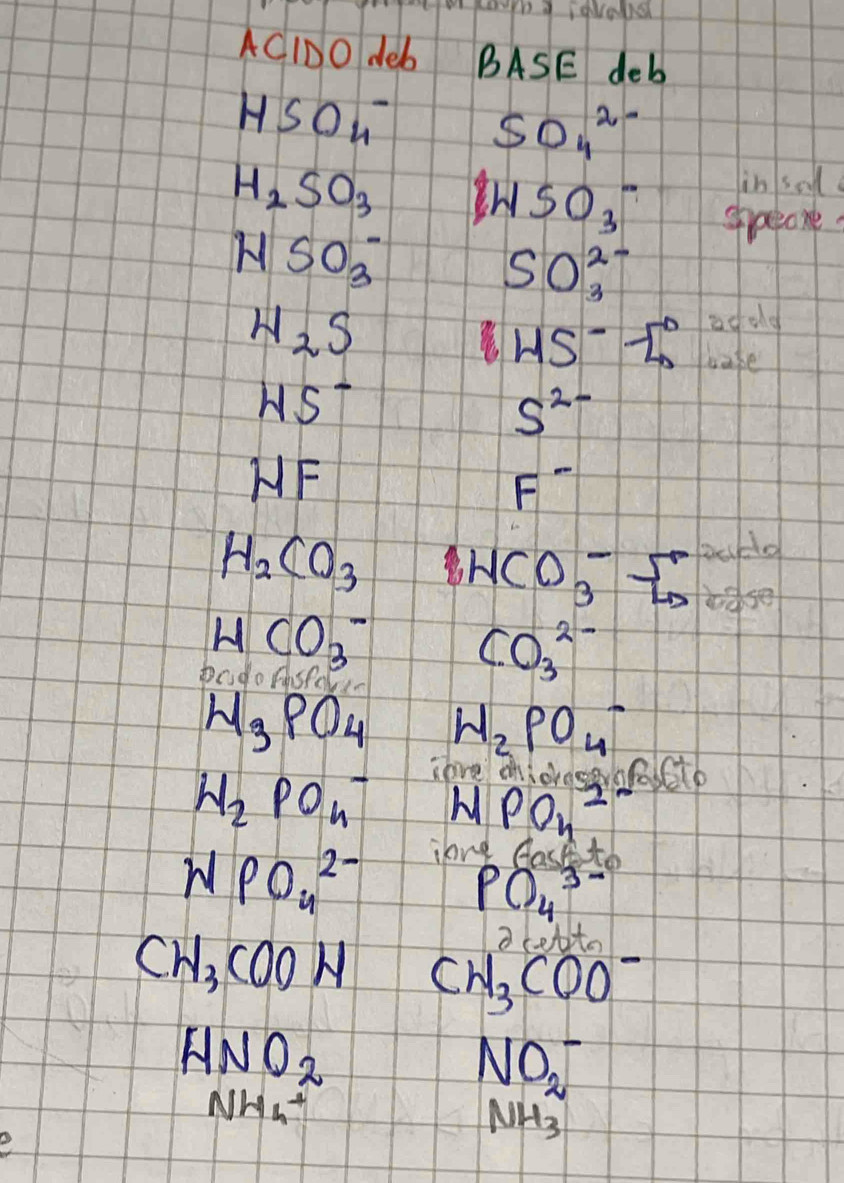 ACIDO deb BASE deb
HSO₄⁻ SO₄²⁻
H₂SO₃ HSO₃⁻ in sol
specie
HSO₃⁻ SO₃²⁻
H₂S HS⁻ acido
base
HS⁻ S²⁻
HF F⁻
H₂CO₃ HCO₃⁻ acido
base
HCO₃⁻ CO₃²⁻
acido fosforico
H₃PO₄ H₂PO₄⁻
ione
H₂PO₄⁻ HPO₄²⁻
ione fosfato
HPO₄²⁻ PO₄³⁻
acetato
CH₃COOH CH₃COO⁻
HNO₂ NO₂⁻
NH₄⁺ NH₃